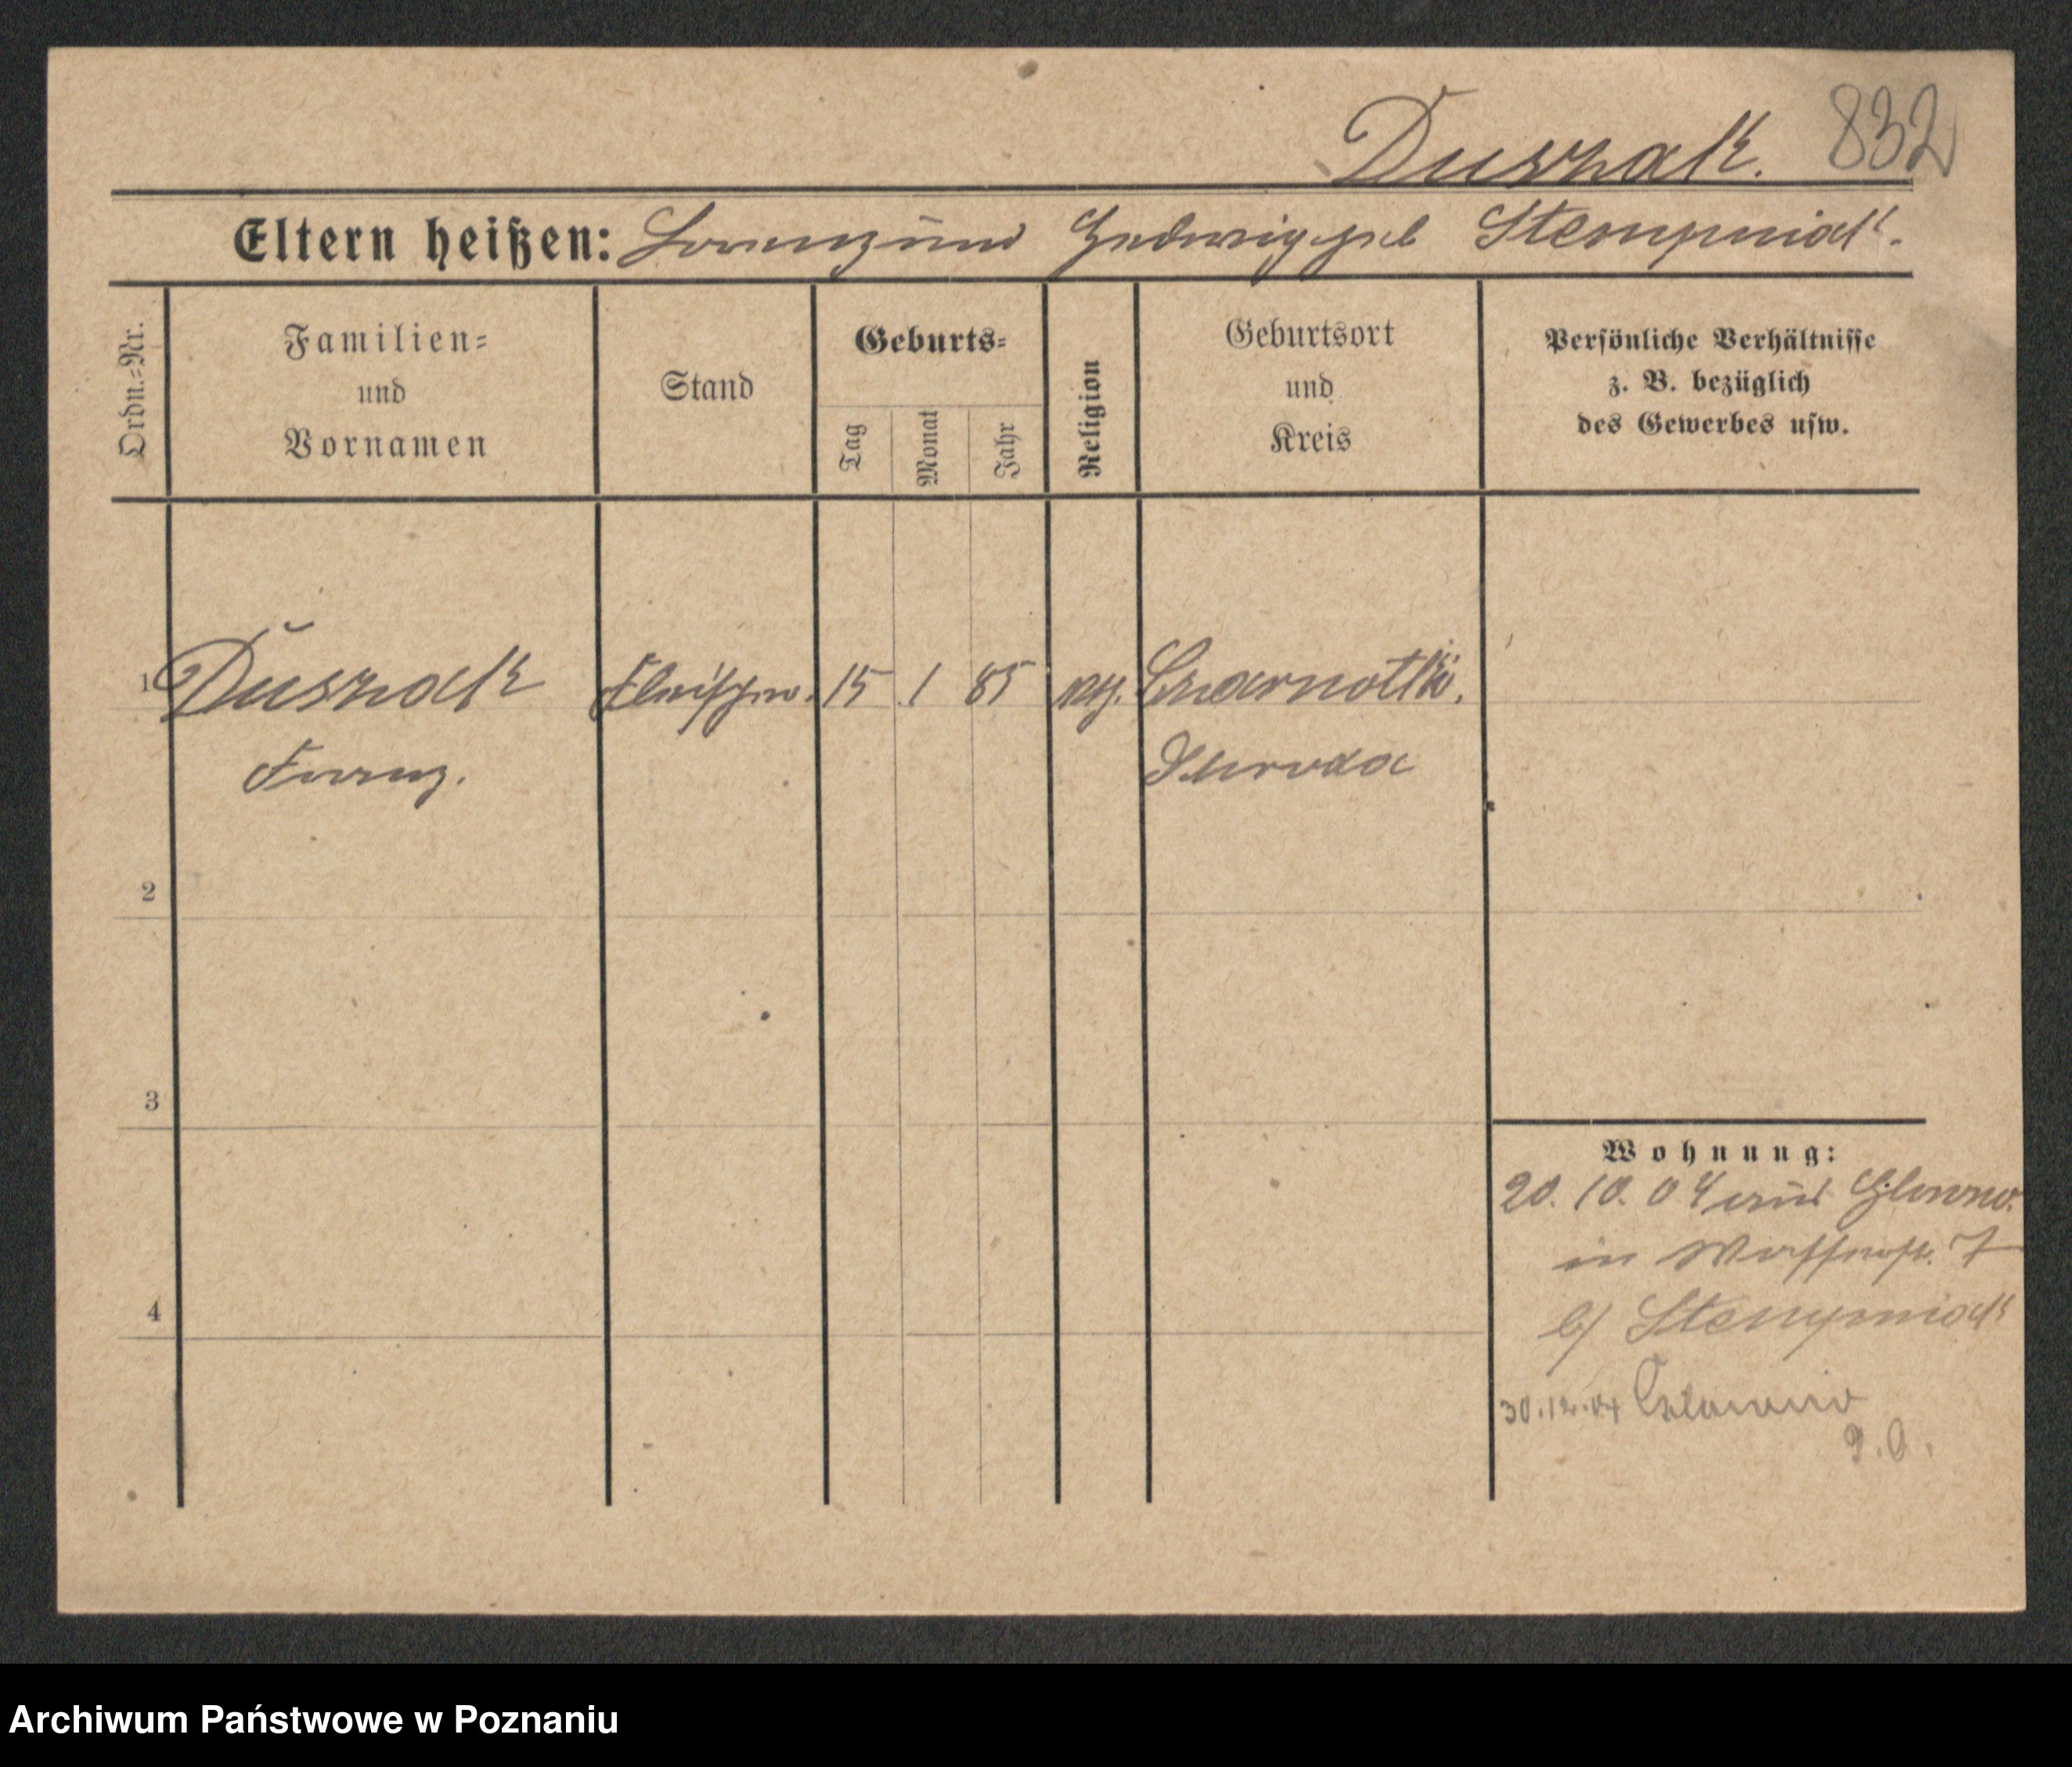 Duszak. 832
Eltern heißen: Lorenz und Hedwig geb Stempniak.
Ordn.=Nr.
Familien=
und
Vornamen
Stand
Geburts=
Tag
Monat
Jahr
Religion
Geburtsort
und
Kreis
Persönliche Verhältnisse
z. B. bezüglich
des Gewerbes usw.
1 Duszak Fleischer. 15 1 85 Czarnotki.
Franz. Schroda
2
3
4
Wohnung:
20. 10. 04 aus Glowno.
in 7
b/ Stempniak
30.12.04 Glowno
P.O.
Archiwum Państwowe w Poznaniu